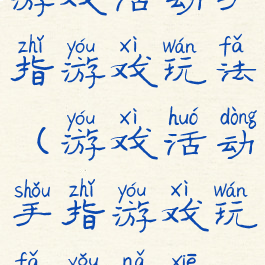 游戏活动手
zhǐ yóu xì wán fǎ
指游戏玩法
yóu xì huó dòng
（游戏活动
shǒu zhǐ yóu xì wán
手指游戏玩
fǎ yǒu nǎ xiē